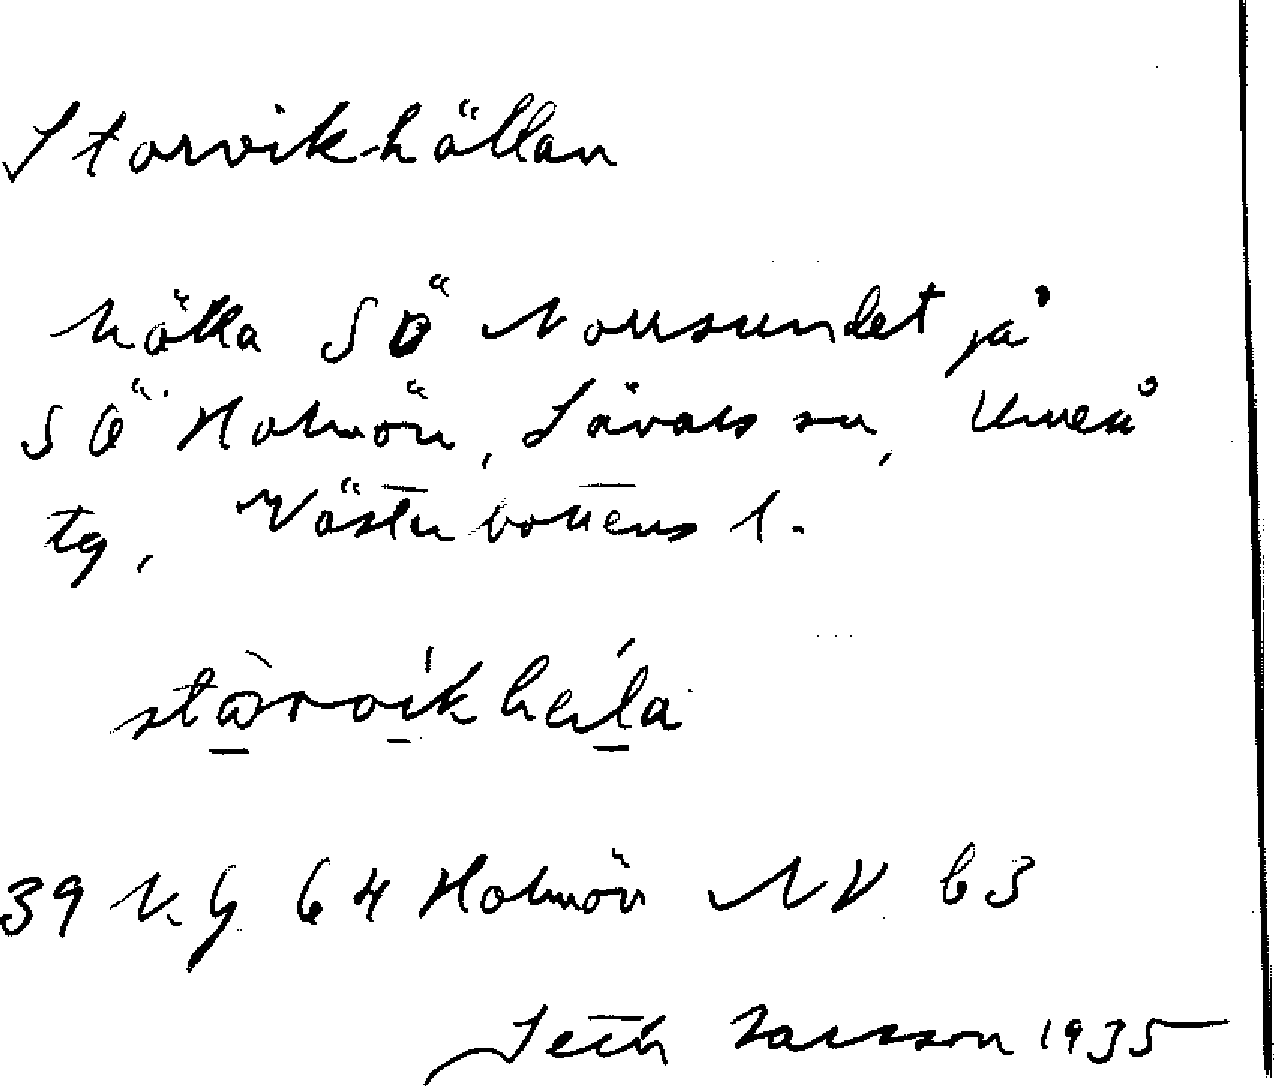 Storvikhällan
hälla SÖ Norrsundet på
SÖ Holmön, Sävars sn, Umeå
tg, Västerbottens l.
39 Holmön NV b3
Seth Larsson 1935